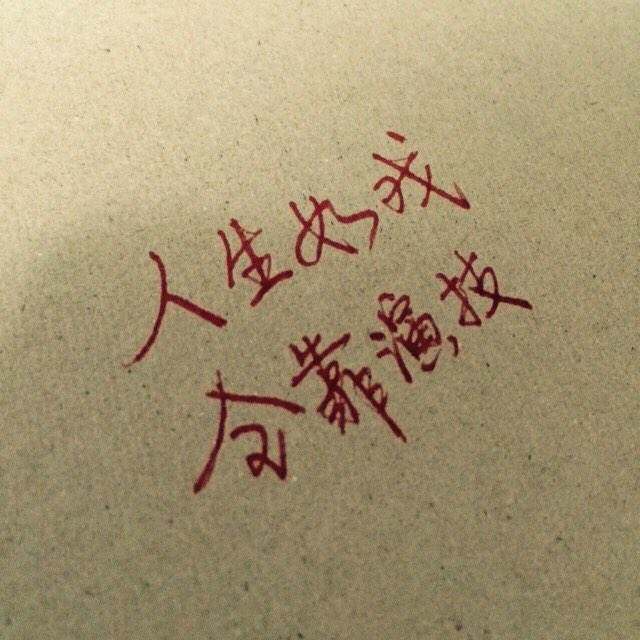 人生如戏
全靠演技